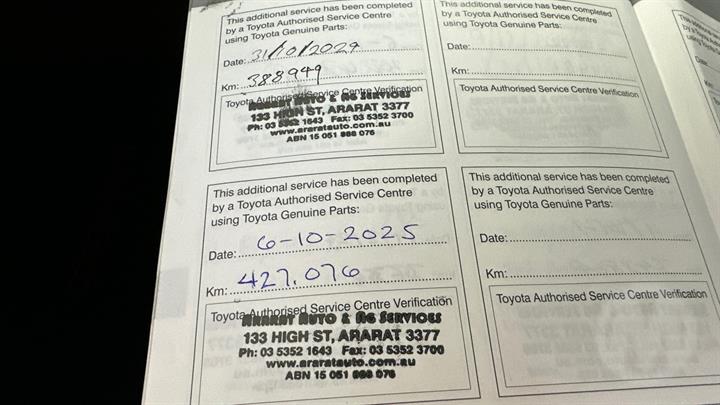 This additional service has been completed
by a Toyota Authorised Service Centre
using Toyota Genuine Parts:
Date: 31/10/2024
Km: 388949
Toyota Authorised Service Centre Verification
ARARAT AUTO & AG SERVICES
133 HIGH ST, ARARAT 3377
Ph: 03 5352 1643 Fax: 03 5352 3700
www.araratauto.com.au
ABN 15 051 076
This additional service has been completed
by a Toyota Authorised Service Centre
using Toyota Genuine Parts:
Date:
Km:
Toyota Authorised Service Centre Verification
This additional service has been completed
by a Toyota Authorised Service Centre
using Toyota Genuine Parts:
Date: 6-10-2025
Km: 427.076
Toyota Authorised Service Centre Verification
ARARAT AUTO & AG SERVICES
133 HIGH ST, ARARAT 3377
Ph: 03 5352 1643 Fax: 03 5352 3700
www.araratauto.com.au
ABN 15 051 076
This additional service has been completed
by a Toyota Authorised Service Centre
using Toyota Genuine Parts:
Date:
Km:
Toyota Authorised Service Centre Verification